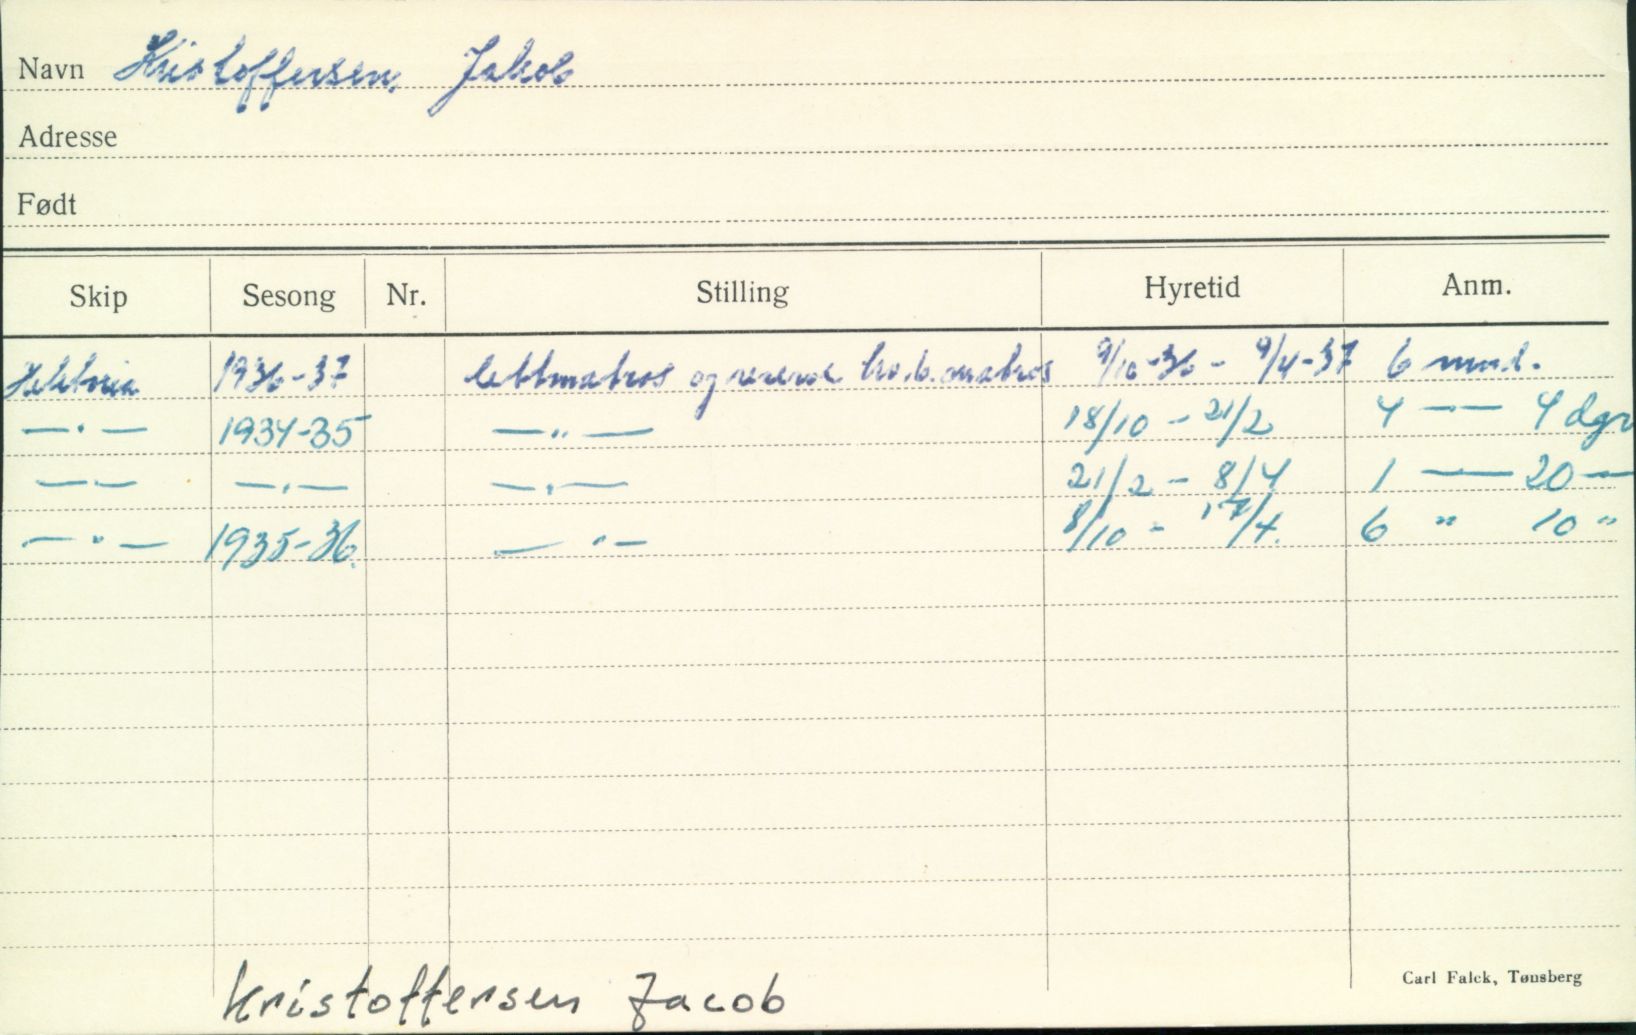 Navn Kristoffersen, Jakob
Adresse
Født
Skip Sesong Nr. Stilling Hyretid Anm.
1936-37 lettmatros og reserve hv.b. matros 9/10-36 - 9/4-37 6 mnd.
— " — 1934-35 — " — 18/10 - 21/2 4 — " — 4 dgr
— " — — " — — " — 21/2 - 8/4 1 — " — 20 —
— " — 1935-36. — " — 8/10 - 17/4. 6 " 10 "
Kristoffersen Jacob
Carl Falck, Tønsberg